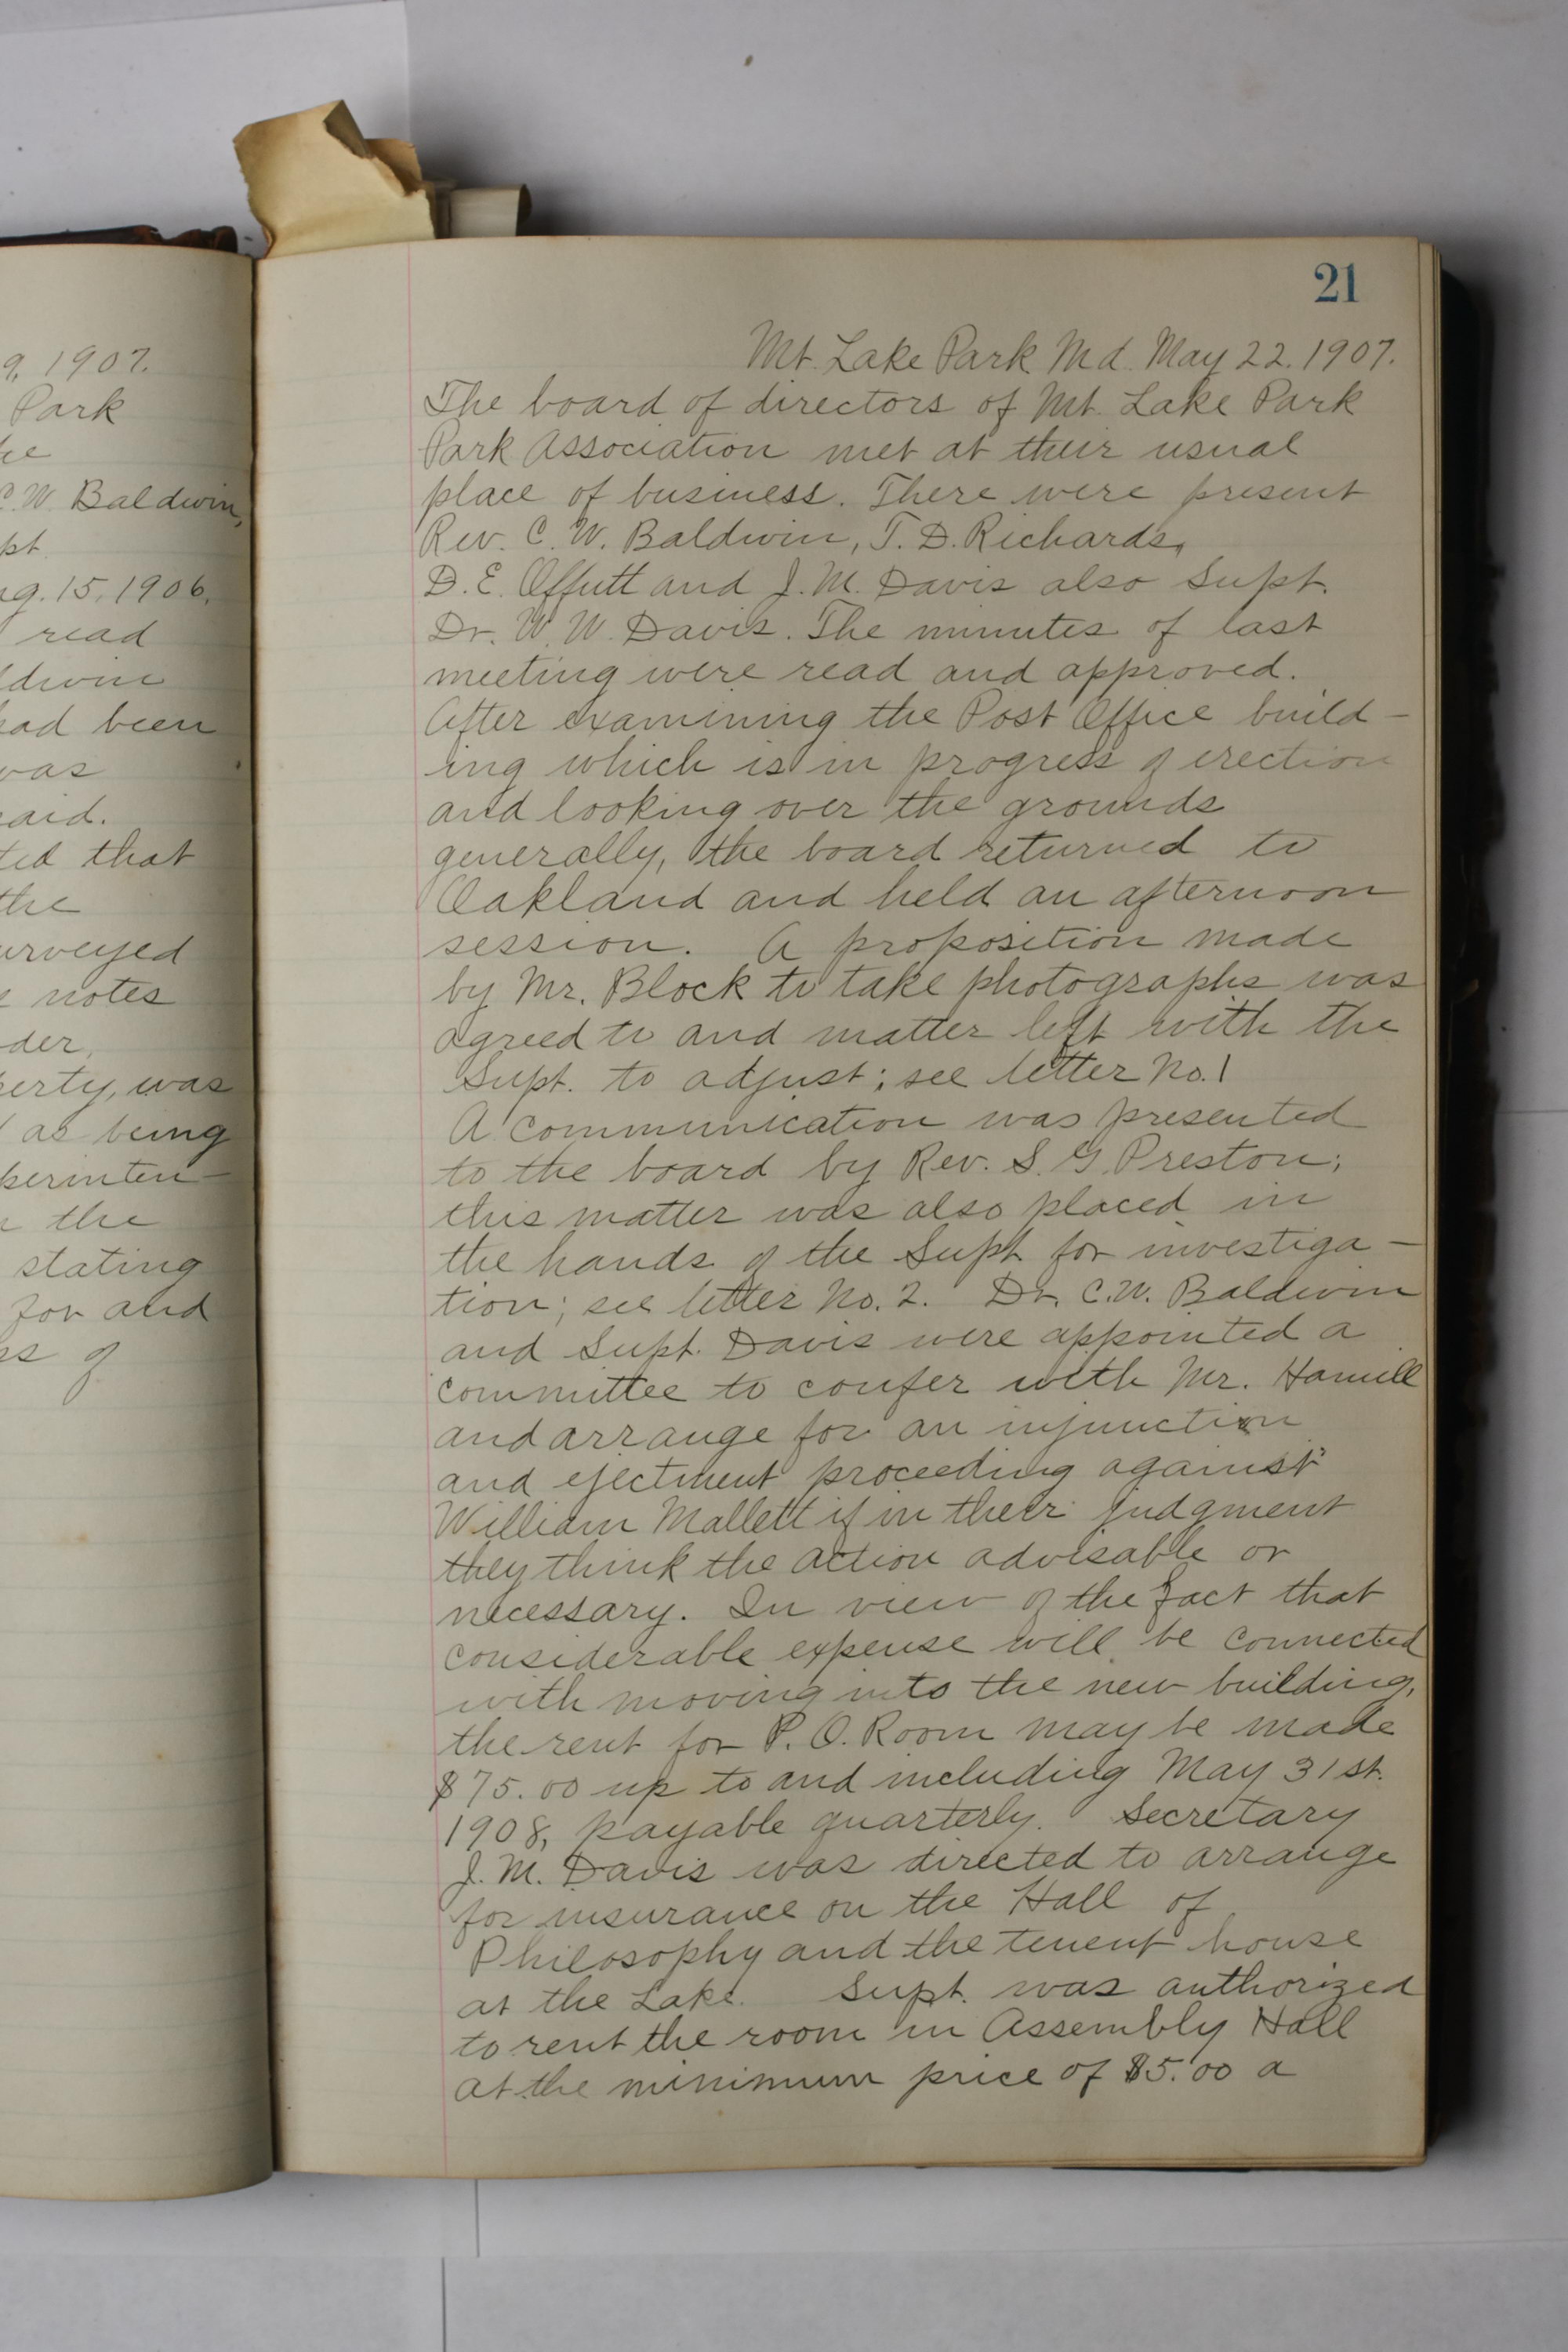 9, 1907.
Park
C. W. Baldwin,
pt.
ug. 15, 1906.
read
ldwin
had been
was
said.
ted that
the
urveyed
notes
der,
perty, was
as being
perinten-
the
stating
for and
ss of
21
Mt. Lake Park Md. May 22. 1907.
The board of directors of Mt. Lake Park
Park Association met at their usual
place of business. There were present
Rev. C. W. Baldwin, T. D. Richards,
D. E. Offutt and J. M. Davis also Supt.
Dr. W. W. Davis. The minutes of last
meeting were read and approved.
After examining the Post Office build-
ing which is in progress of erection
and looking over the grounds
generally, the board returned to
Oakland and held an afternoon
session. A proposition made
by Mr. Block to take photographs was
agreed to and matter left with the
Supt. to adjust; see letter No. 1
A communication was presented
to the board by Rev. S. G. Preston;
this matter was also placed in
the hands of the Supt. for investiga-
tion; see letter No. 2. Dr. C. W. Baldwin
and Supt. Davis were appointed a
committee to confer with Mr. Hamill
and arrange for an injunction
and ejectment proceeding against
William Mallett if in their judgment
they think the action advisable or
necessary. In view of the fact that
considerable expense will be connected
with moving into the new building,
the rent for P. O. Room may be made
$75.00 up to and including May 31st.
1908, payable quarterly. Secretary
J. M. Davis was directed to arrange
for insurance on the Hall of
Philosophy and the tenent house
at the Lake. Supt. was authorized
to rent the room in Assembly Hall
at the minimum price of $5.00 a